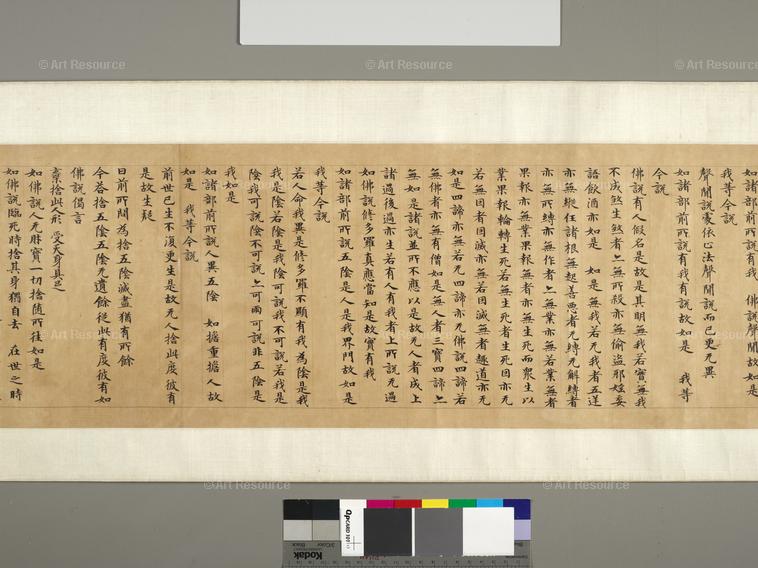 ©Art Resource ©Art Resource ©Art Resource
如諸部前所說有我 佛說聲聞故如是
我等今說
聲聞說豪依心法聲聞說而已更无異
如諸部前所說有我有說故如是 我等
今說
佛說有人假名是故是其明無我若實無我
不成煞生煞者上無所殺亦無偷盜耶婬妄
語飲酒亦如是 如是無我若无我者五逆
亦無縱任諸根無起善惡者无縛无解縛者
亦無所縛亦無作者上無業亦無若業無者
果報亦無業果報無者亦無生死而衆生以
業果報輪轉生死若無生死者生死因亦无
若無因者因滅亦無若因滅無者趣道亦无
如是四諦亦無若无四諦亦无佛說四諦若
無佛者亦無有僧如是無人者三寶四諦上
無如是諸說並所不應以是故无人者成上
諸過後過亦生若有人有我者上所說无過
如佛說修多羅真應當知是故實有我
如諸部前所說五陰是人是我界門故如是
我等今說
若人命我異是修多羅不顯有我為陰是我
我是陰若陰是我陰可說我不可說若我是
陰我可說陰不可說上可兩可說非五陰是
我如是
如諸部前所說人異五陰 如擔重擔人故
如是 我等今說
前世已生不復更生是故无人捨此有度彼有
是故生疑
曰前所問為捨五陰滅盡猶有所餘
今荅捨五陰五陰无遺餘從此有度彼有如
佛說偈言
棄捨此人形 受天身具足
如佛說人无財寶一切捨隨所往如是
如佛說臨死時捨其身猶自去 在世之時
©Art Resource ©Art Resource ©Art Resource
QPcard 101
Kodak